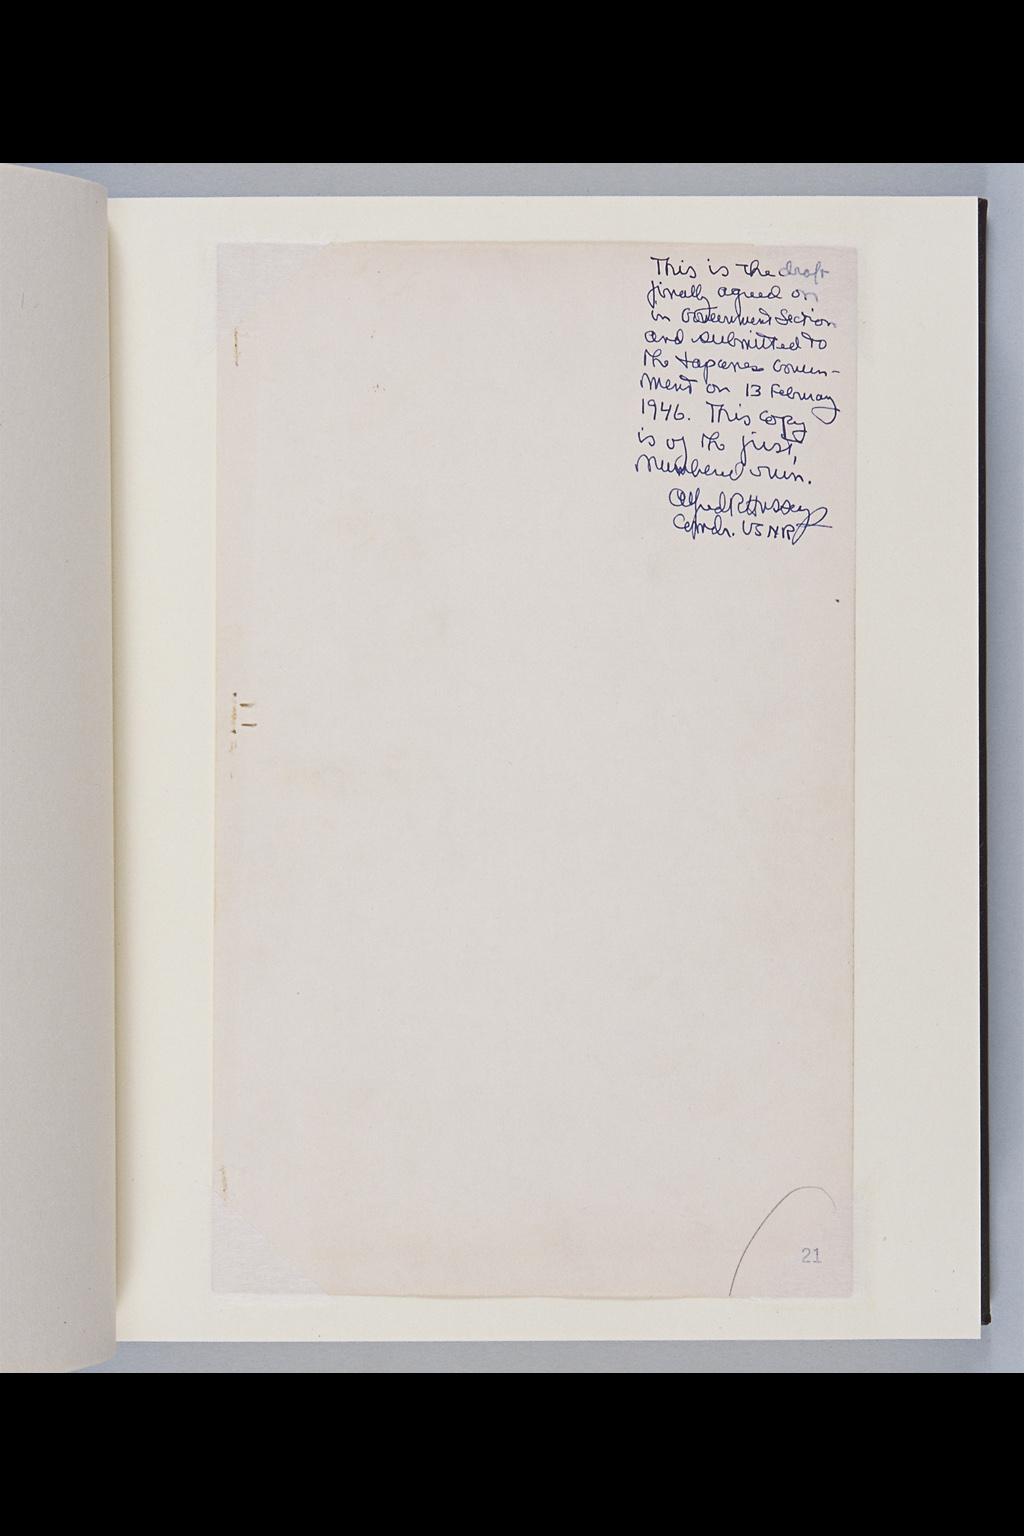 This is the draft
finally agreed on
in Government Section
and submitted to
the Japanese Govern-
ment on 13 February
1946. This copy
is of the first,
numbered run.
Alfred R Hussey
Comdr. USNR
21